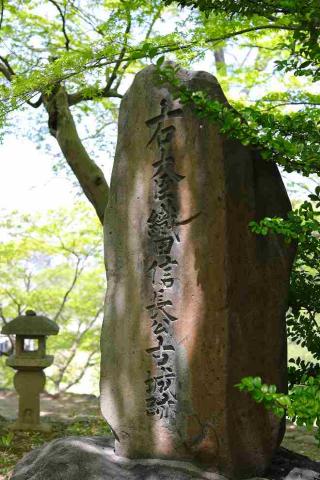 右大臣織田信長公古城跡